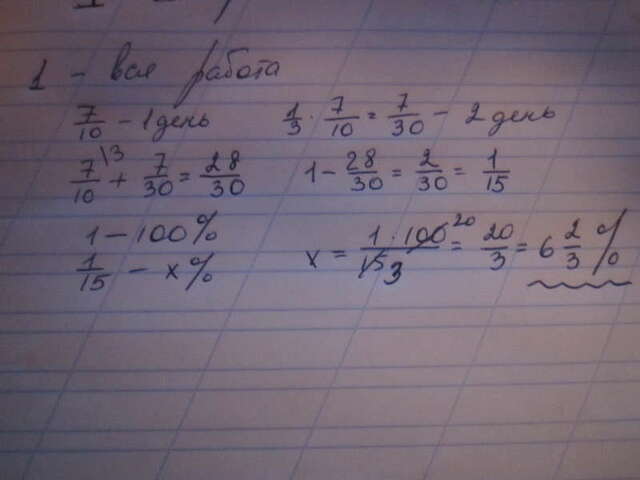 1 - вся работа
7/10 - 1 день 1/3 · 7/10 = 7/30 - 2 день
7/10 \3 + 7/30 = 28/30 1 - 28/30 = 2/30 = 1/15
1 - 100%
1/15 - x% x = 1 · 100 20 / 15 3 = 20/3 = 6 2/3 %